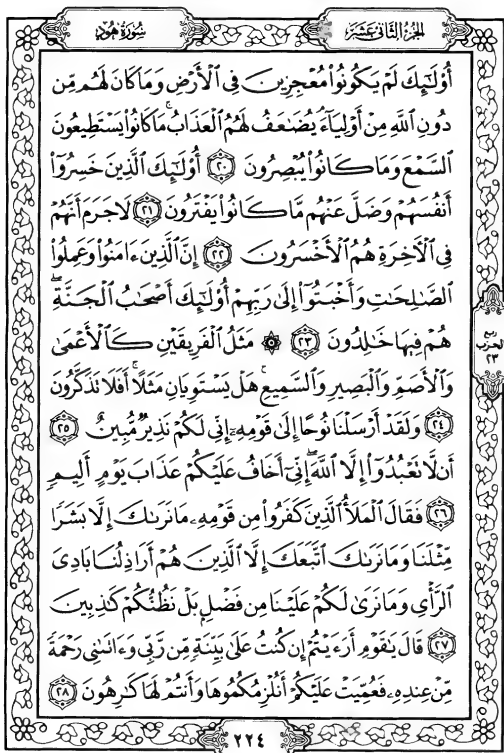 الجزء الثاني عشر
سورة هود
أُوْلَٰٓئِكَ لَمْ يَكُونُوا۟ مُعْجِزِينَ فِى ٱلْأَرْضِ وَمَا كَانَ لَهُم مِّن
دُونِ ٱللَّهِ مِنْ أَوْلِيَآءَ يُضَٰعَفُ لَهُمُ ٱلْعَذَابُ مَا كَانُوا۟ يَسْتَطِيعُونَ
ٱلسَّمْعَ وَمَا كَانُوا۟ يُبْصِرُونَ ٢٠ أُوْلَٰٓئِكَ ٱلَّذِينَ خَسِرُوٓا۟
أَنفُسَهُمْ وَضَلَّ عَنْهُم مَّا كَانُوا۟ يَفْتَرُونَ ٢١ لَا جَرَمَ أَنَّهُمْ
فِى ٱلْءَاخِرَةِ هُمُ ٱلْأَخْسَرُونَ ٢٢ إِنَّ ٱلَّذِينَ ءَامَنُوا۟ وَعَمِلُوا۟
ٱلصَّٰلِحَٰتِ وَأَخْبَتُوٓا۟ إِلَىٰ رَبِّهِمْ أُوْلَٰٓئِكَ أَصْحَٰبُ ٱلْجَنَّةِ ۖ
هُمْ فِيهَا خَٰلِدُونَ ٢٣ ۞ مَثَلُ ٱلْفَرِيقَيْنِ كَٱلْأَعْمَىٰ
وَٱلْأَصَمِّ وَٱلْبَصِيرِ وَٱلسَّمِيعِ ۚ هَلْ يَسْتَوِيَانِ مَثَلًا ۚ أَفَلَا تَذَكَّرُونَ
٢٤ وَلَقَدْ أَرْسَلْنَا نُوحًا إِلَىٰ قَوْمِهِۦٓ إِنِّى لَكُمْ نَذِيرٌ مُّبِينٌ ٢٥
أَن لَّا تَعْبُدُوٓا۟ إِلَّا ٱللَّهَ ۖ إِنِّىٓ أَخَافُ عَلَيْكُمْ عَذَابَ يَوْمٍ أَلِيمٍ
٢٦ فَقَالَ ٱلْمَلَأُ ٱلَّذِينَ كَفَرُوا۟ مِن قَوْمِهِۦ مَا نَرَىٰكَ إِلَّا بَشَرًا
مِّثْلَنَا وَمَا نَرَىٰكَ ٱتَّبَعَكَ إِلَّا ٱلَّذِينَ هُمْ أَرَاذِلُنَا بَادِىَ
ٱلرَّأْىِ وَمَا نَرَىٰ لَكُمْ عَلَيْنَا مِن فَضْلٍۭ بَلْ نَظُنُّكُمْ كَٰذِبِينَ
٢٧ قَالَ يَٰقَوْمِ أَرَءَيْتُمْ إِن كُنتُ عَلَىٰ بَيِّنَةٍ مِّن رَّبِّى وَءَاتَىٰنِى رَحْمَةً
مِّنْ عِندِهِۦ فَعُمِّيَتْ عَلَيْكُمْ أَنُلْزِمُكُمُوهَا وَأَنتُمْ لَهَا كَٰرِهُونَ ٢٨
ربع
الحزب
٢٣
٢٢٤